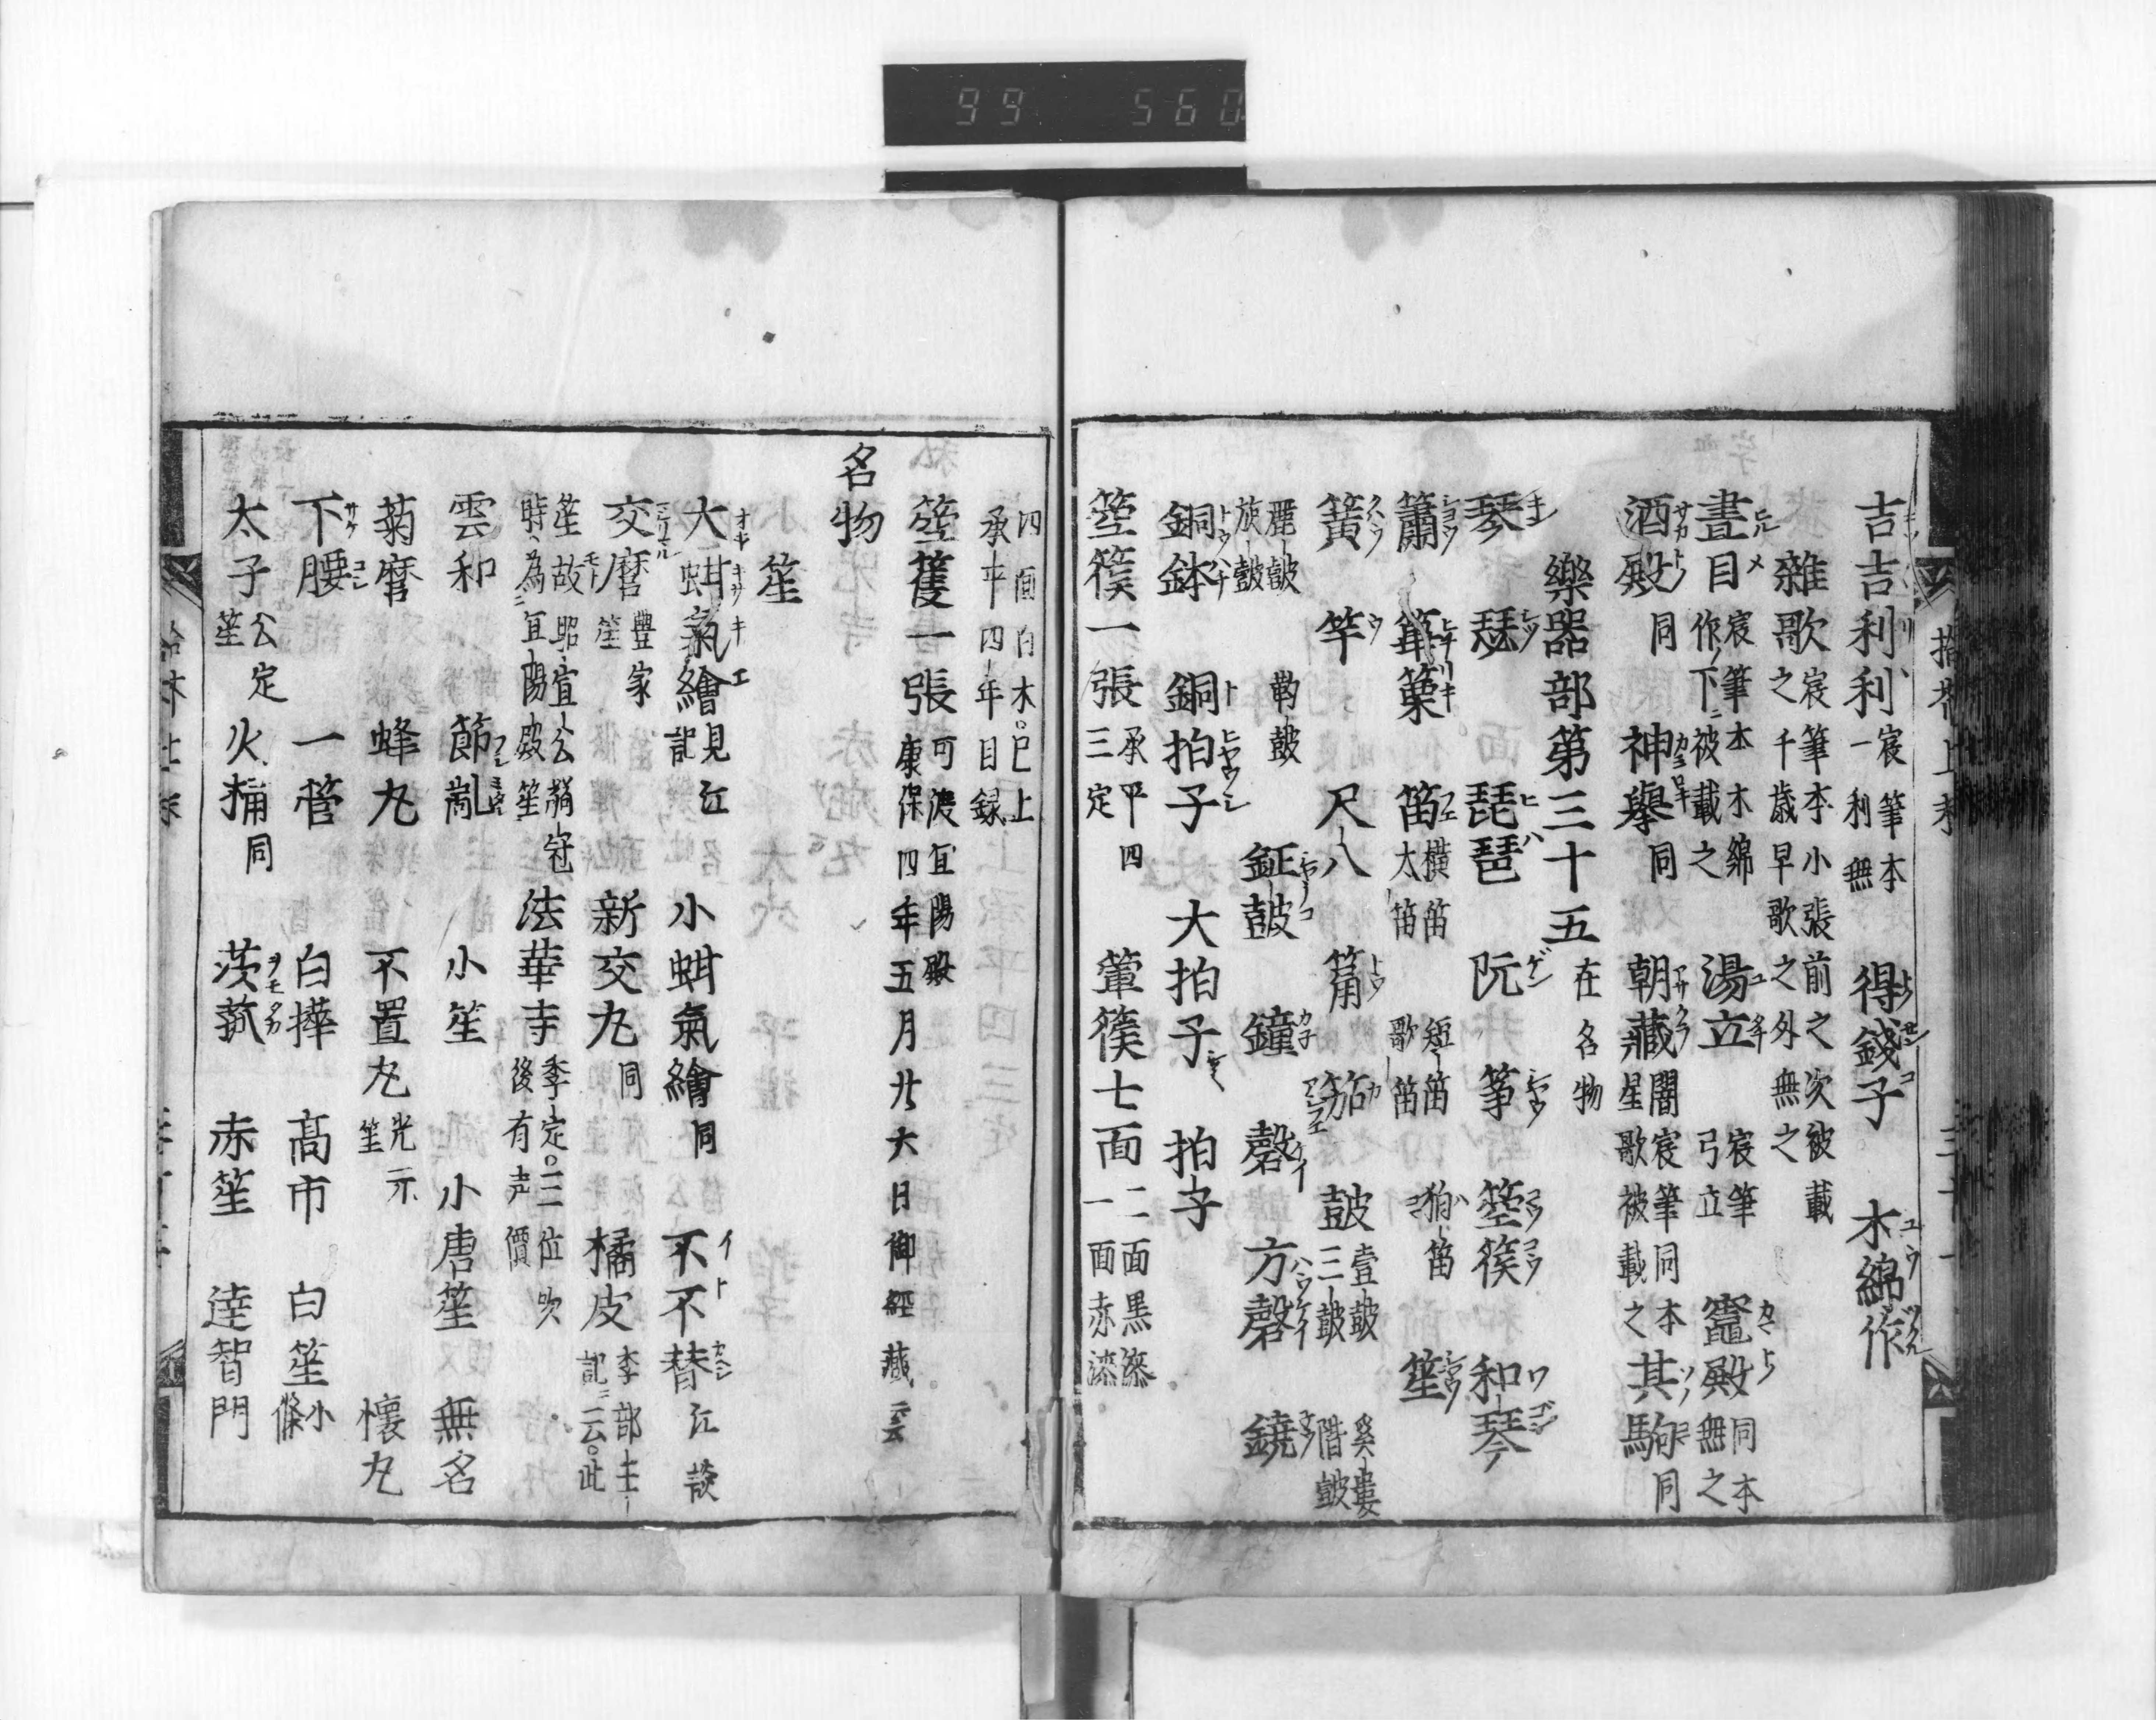 99 560
吉吉利利 宸筆本一利無 得錢子 木綿作
雜歌 宸筆本小張前之次被載之千歳早歌之外無之
晝目 宸筆本木綿作下被載之 湯立 宸筆弓立 竈殿 同本無之
酒殿 同 神擧 同 朝藏 星歌被載之 其駒 同
樂器部第三十五 在名物
琴 瑟 琵琶 阮 箏 箜篌 和琴
簫 篳篥 笛 横笛 太笛 短笛 歌笛 狛笛 笙
簧 竽 尺八 筩 笳 皷 壹皷 三皷 奚婁 階皷
鹿皷 鼗皷 鉦皷 鐘 磬 方磬 鐃
銅鉢 銅拍子 大拍子 拍子
箜篌一張 承平四三定 篳篌七面 二面黒漆一面赤漆
四面白木。已上承平四年目録
箜篌一張 可渡宜陽殿康保四年五月廿六日御經藏云云
名物
笙
大蚶氣繪 見江記 小蚶氣繪 同 不不替 江談
交麿 豐家笙 新交丸 同 橘皮 李部王記云。此
笙故昭宣公解冠時為宜陽殿笙 法華寺 季定。二位吹後有声價
雲和 節亂 小笙 小唐笙 無名
菊麿 蜂丸 不置丸 光元笙 懷丸
下腰 一管 白擇 髙市 白笙 小條
太子 公定笙 火桶 同 茨菰 赤笙 達智門